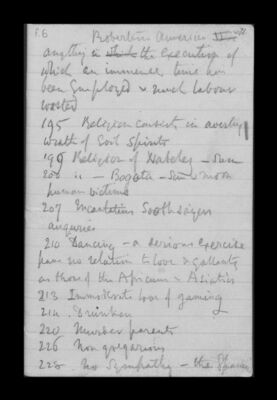 P. 6
Robertson America
anything a the execution of
which an immense time has
been employed & much labour
wasted
195 Religion consists in averting
wrath of Evil Spirits
199 Religion of Natchez - Sun
200 " - Bogota - Sun & moon
human victims
207 Incantations Soothsayers
auguries
210 Dancing - a serious exercise
has no relation to love & gallantry
as those of the Africans & Asiatics
213 Immoderate love of gaming
214 Drunken
220 Murder parents
226 Non gregarious
228 no sympathy - the Spaniar